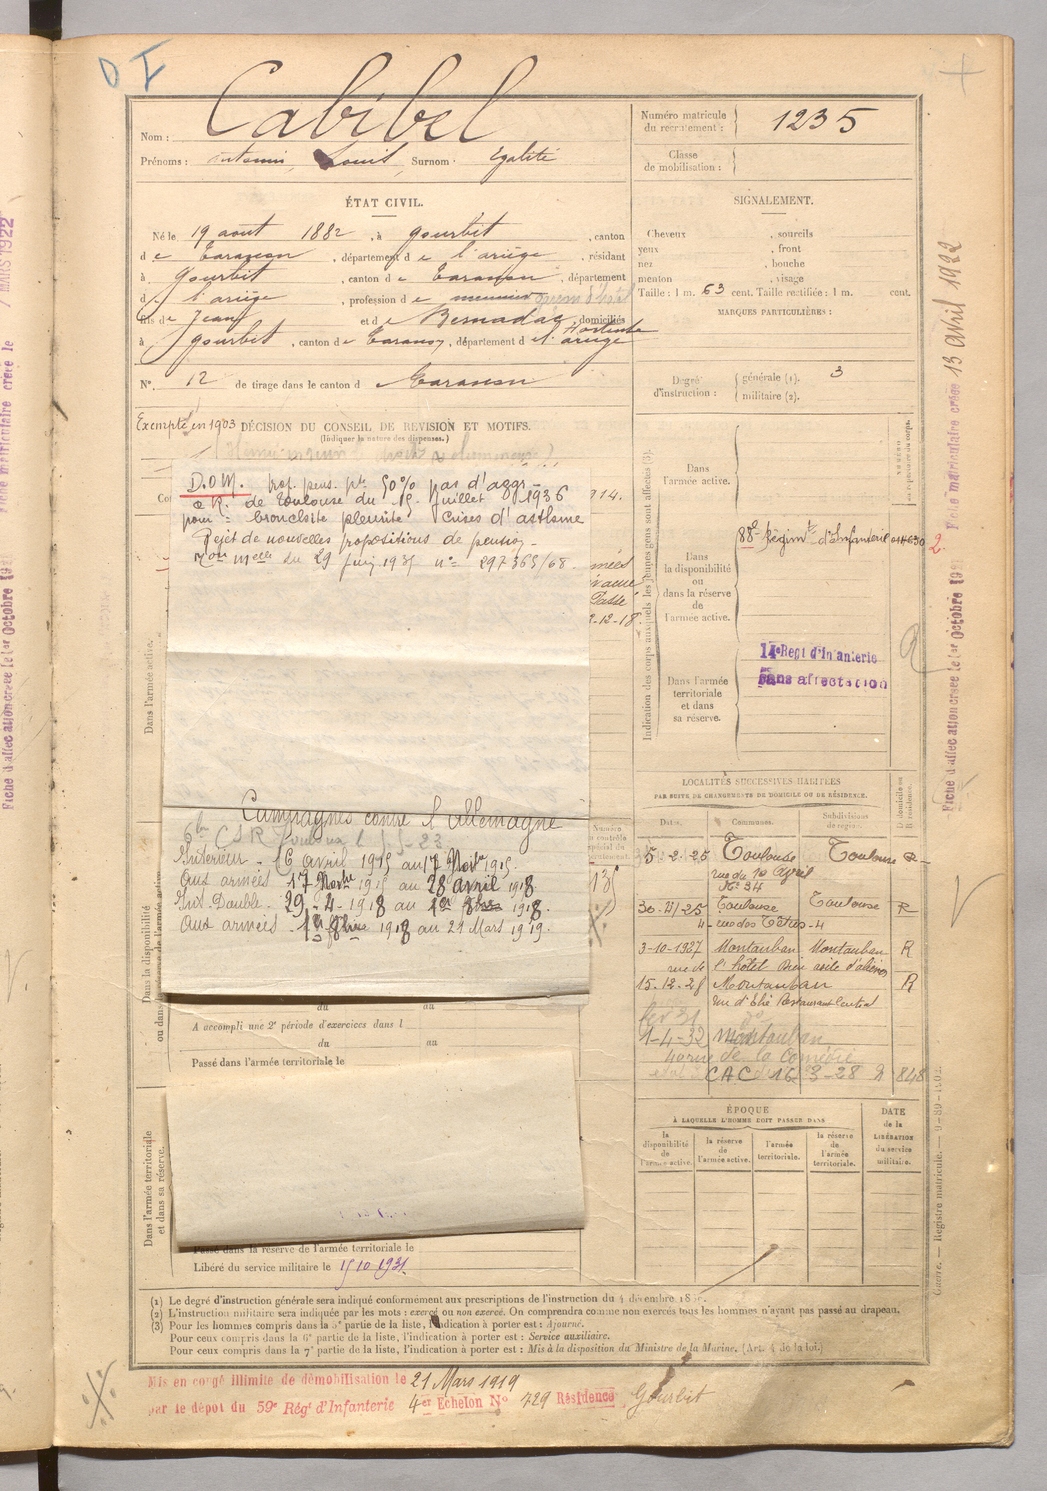 Nom : Cabibel
Prénoms : Antonin Louis Surnom : Egalité
Numéro matricule du recrutement : 1235
Classe de mobilisation :
ÉTAT CIVIL.
Né le 19 août 1882, à Gourbit, canton
de Tarascon, département de l'ariège, résidant
à Gourbit, canton de Tarascon, département
d l'ariège, profession de meunier
fils de Jean et de Bernadac Hortense, domiciliés
à Gourbit, canton de Tarascon, département d l'ariège
N° 12 de tirage dans le canton d Tarascon
SIGNALEMENT.
Cheveux , sourcils
yeux , front
nez , bouche
menton , visage
Taille : 1 m. 63 cent. Taille rectifiée : 1 m. cent.
MARQUES PARTICULIÈRES :
Degré d'instruction : générale (1). 3
militaire (2).
Exempté en 1903 DÉCISION DU CONSEIL DE REVISION ET MOTIFS.
(Indiquer la nature des dispenses.)
D.O.M. prop. pens. pte 50% pas d'aggr
C.R. de Toulouse du 15 juillet 1936
pour : bronchite pleurite crises d'asthme
Rejet de nouvelles propositions de pension
du 29 juin 1937 n° 297365/68
Campagnes contre l'Allemagne
Intérieur - 16 avril 1915 au 17 Novbre 1915.
Aux armées 17 Novbre 1915 au 28 avril 1918
Int. Double. 29-4-1918 au 1er 8bre 1918.
Aux armées. 1er 8bre 1918 au 21 Mars 1919.
Dans l'armée active.
Dans la disponibilité ou dans la réserve de l'armée active.
88e Régimt d'Infanterie
Dans l'armée territoriale et dans sa réserve.
14e Regt d'Infanterie
Sans affectation
Indication des corps auxquels les jeunes gens sont affectés (3).
LOCALITÉS SUCCESSIVES HABITÉES
PAR SUITE DE CHANGEMENTS DE DOMICILE OU DE RÉSIDENCE.
Dates. Communes. Subdivisions de région. D domicile ou R résidence.
5-2-25 Toulouse Toulouse R
rue du 10 Avril
N° 34
Toulouse Toulouse R
4 - rue des -4
3-10-1927 Montauban Montauban R
rue de l'hôtel Dieu asile d'aliénés
15-12-28 Montauban R
rue d'Elie Restaurant Central
1-4-32 Montauban
40 rue de la Comédie
CAC 16 3-28 D 848
ÉPOQUE
À LAQUELLE L'HOMME DOIT PASSER DANS
la disponibilité de l'armée active.
la réserve de l'armée active.
l'armée territoriale.
la réserve de l'armée territoriale.
DATE de la LIBÉRATION du service militaire.
Dans l'armée active.
du au
A accompli une 2e période d'exercices dans l
du au
Passé dans l'armée territoriale le
Dans l'armée territoriale et dans sa réserve.
Passé dans la réserve de l'armée territoriale le
Libéré du service militaire le 15 10 1931.
(1) Le degré d'instruction générale sera indiqué conformément aux prescriptions de l'instruction du 4 décembre
(2) L'instruction militaire sera indiquée par les mots : exercé ou non exercé. On comprendra comme non exercés tous les hommes n'ayant pas passé au drapeau.
(3) Pour les hommes compris dans la 5e partie de la liste, l'indication à porter est : Ajourné.
Pour ceux compris dans la 6e partie de la liste, l'indication à porter est : Service auxiliaire.
Pour ceux compris dans la 7e partie de la liste, l'indication à porter est : Mis à la disposition du Ministre de la Marine. (Art. 4 de la loi.)
Mis en congé illimité de démobilisation le 21 Mars 1919
par le dépôt du 59e Régt d'Infanterie 4er Echelon N° 729 Résidence Gourbit
Fiche d'affectation créée le 1er Octobre 1921 Fiche matriculaire créée 13 Avril 1922